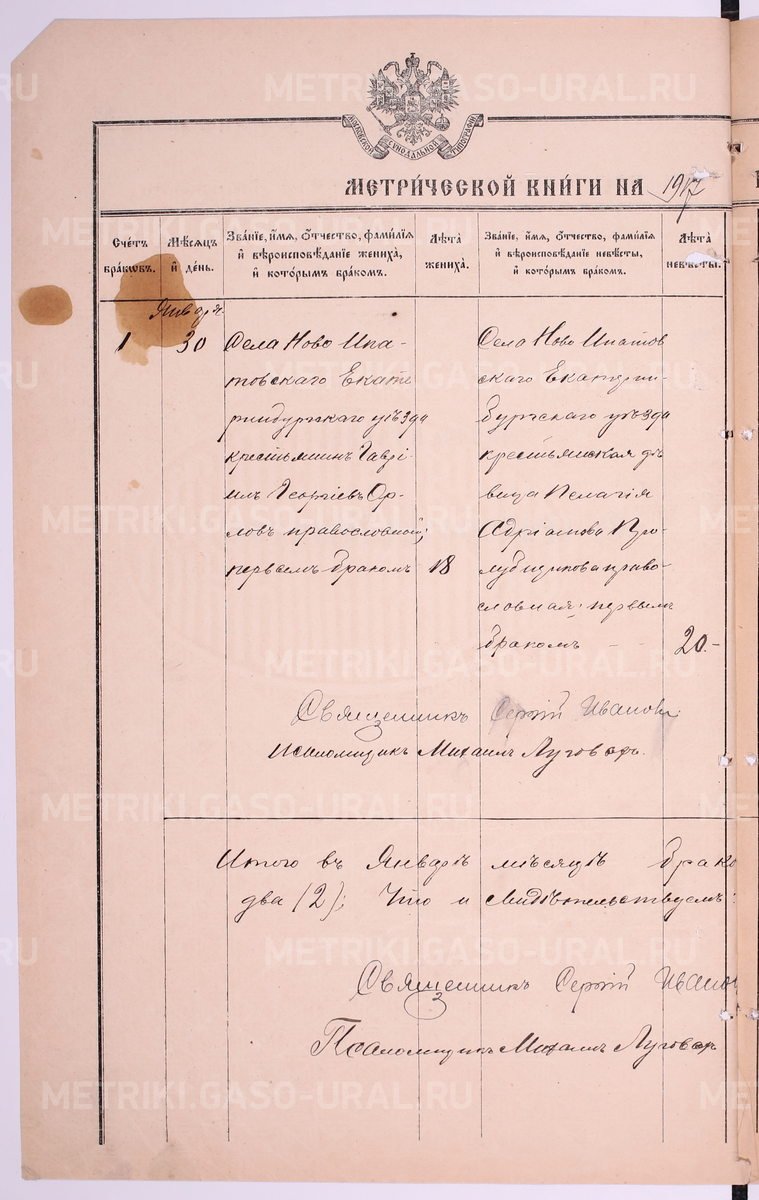 МОСКОВСКОЙ СУНОДАЛЬНОЙ ТИПОГРАФІИ
МЕТРИ́ЧЕСКОЙ КНИ́ГИ НА 1917
Сче́тъ бра́ковъ.
Мѣ́сяцъ и́ де́нь.
Зва́нїе, и́мя, ѻ́тчество, фами́лїя и́ вѣроисповѣ́данїе жениха̀, и́ кото́рымъ бра́комъ.
Лѣта̀ жениха̀.
Зва́нїе, и́мя, ѻ́тчество, фами́лїя и́ вѣроисповѣ́данїе невѣ́сты, и́ кото́рымъ бра́комъ.
Лѣта̀ невѣ́сты.
Января
1
30
Села Ново Ипа-
товскаго Екате
ринбургскаго уѣзда
крестьянинъ Гаврі-
илъ Георгіевъ Ор-
ловъ православный;
первымъ бракомъ
18
Села Ново Ипатов
скаго Екатерин-
бургскаго уѣзда
крестьянская дѣ
вица Пелагія
Адріанова
лубщикова право-
славная: первымъ
бракомъ
20.-
Священникъ Сергій Ивановъ
Псаломщикъ Михаилъ Луговыхъ.
Итого въ Январѣ мѣсяцѣ брако
два (2); Что и свидѣтельствуемъ:
Священникъ Сергій Иванов
Псаломщикъ Михаилъ Луговыхъ
METRIKI.GASO-URAL.RU